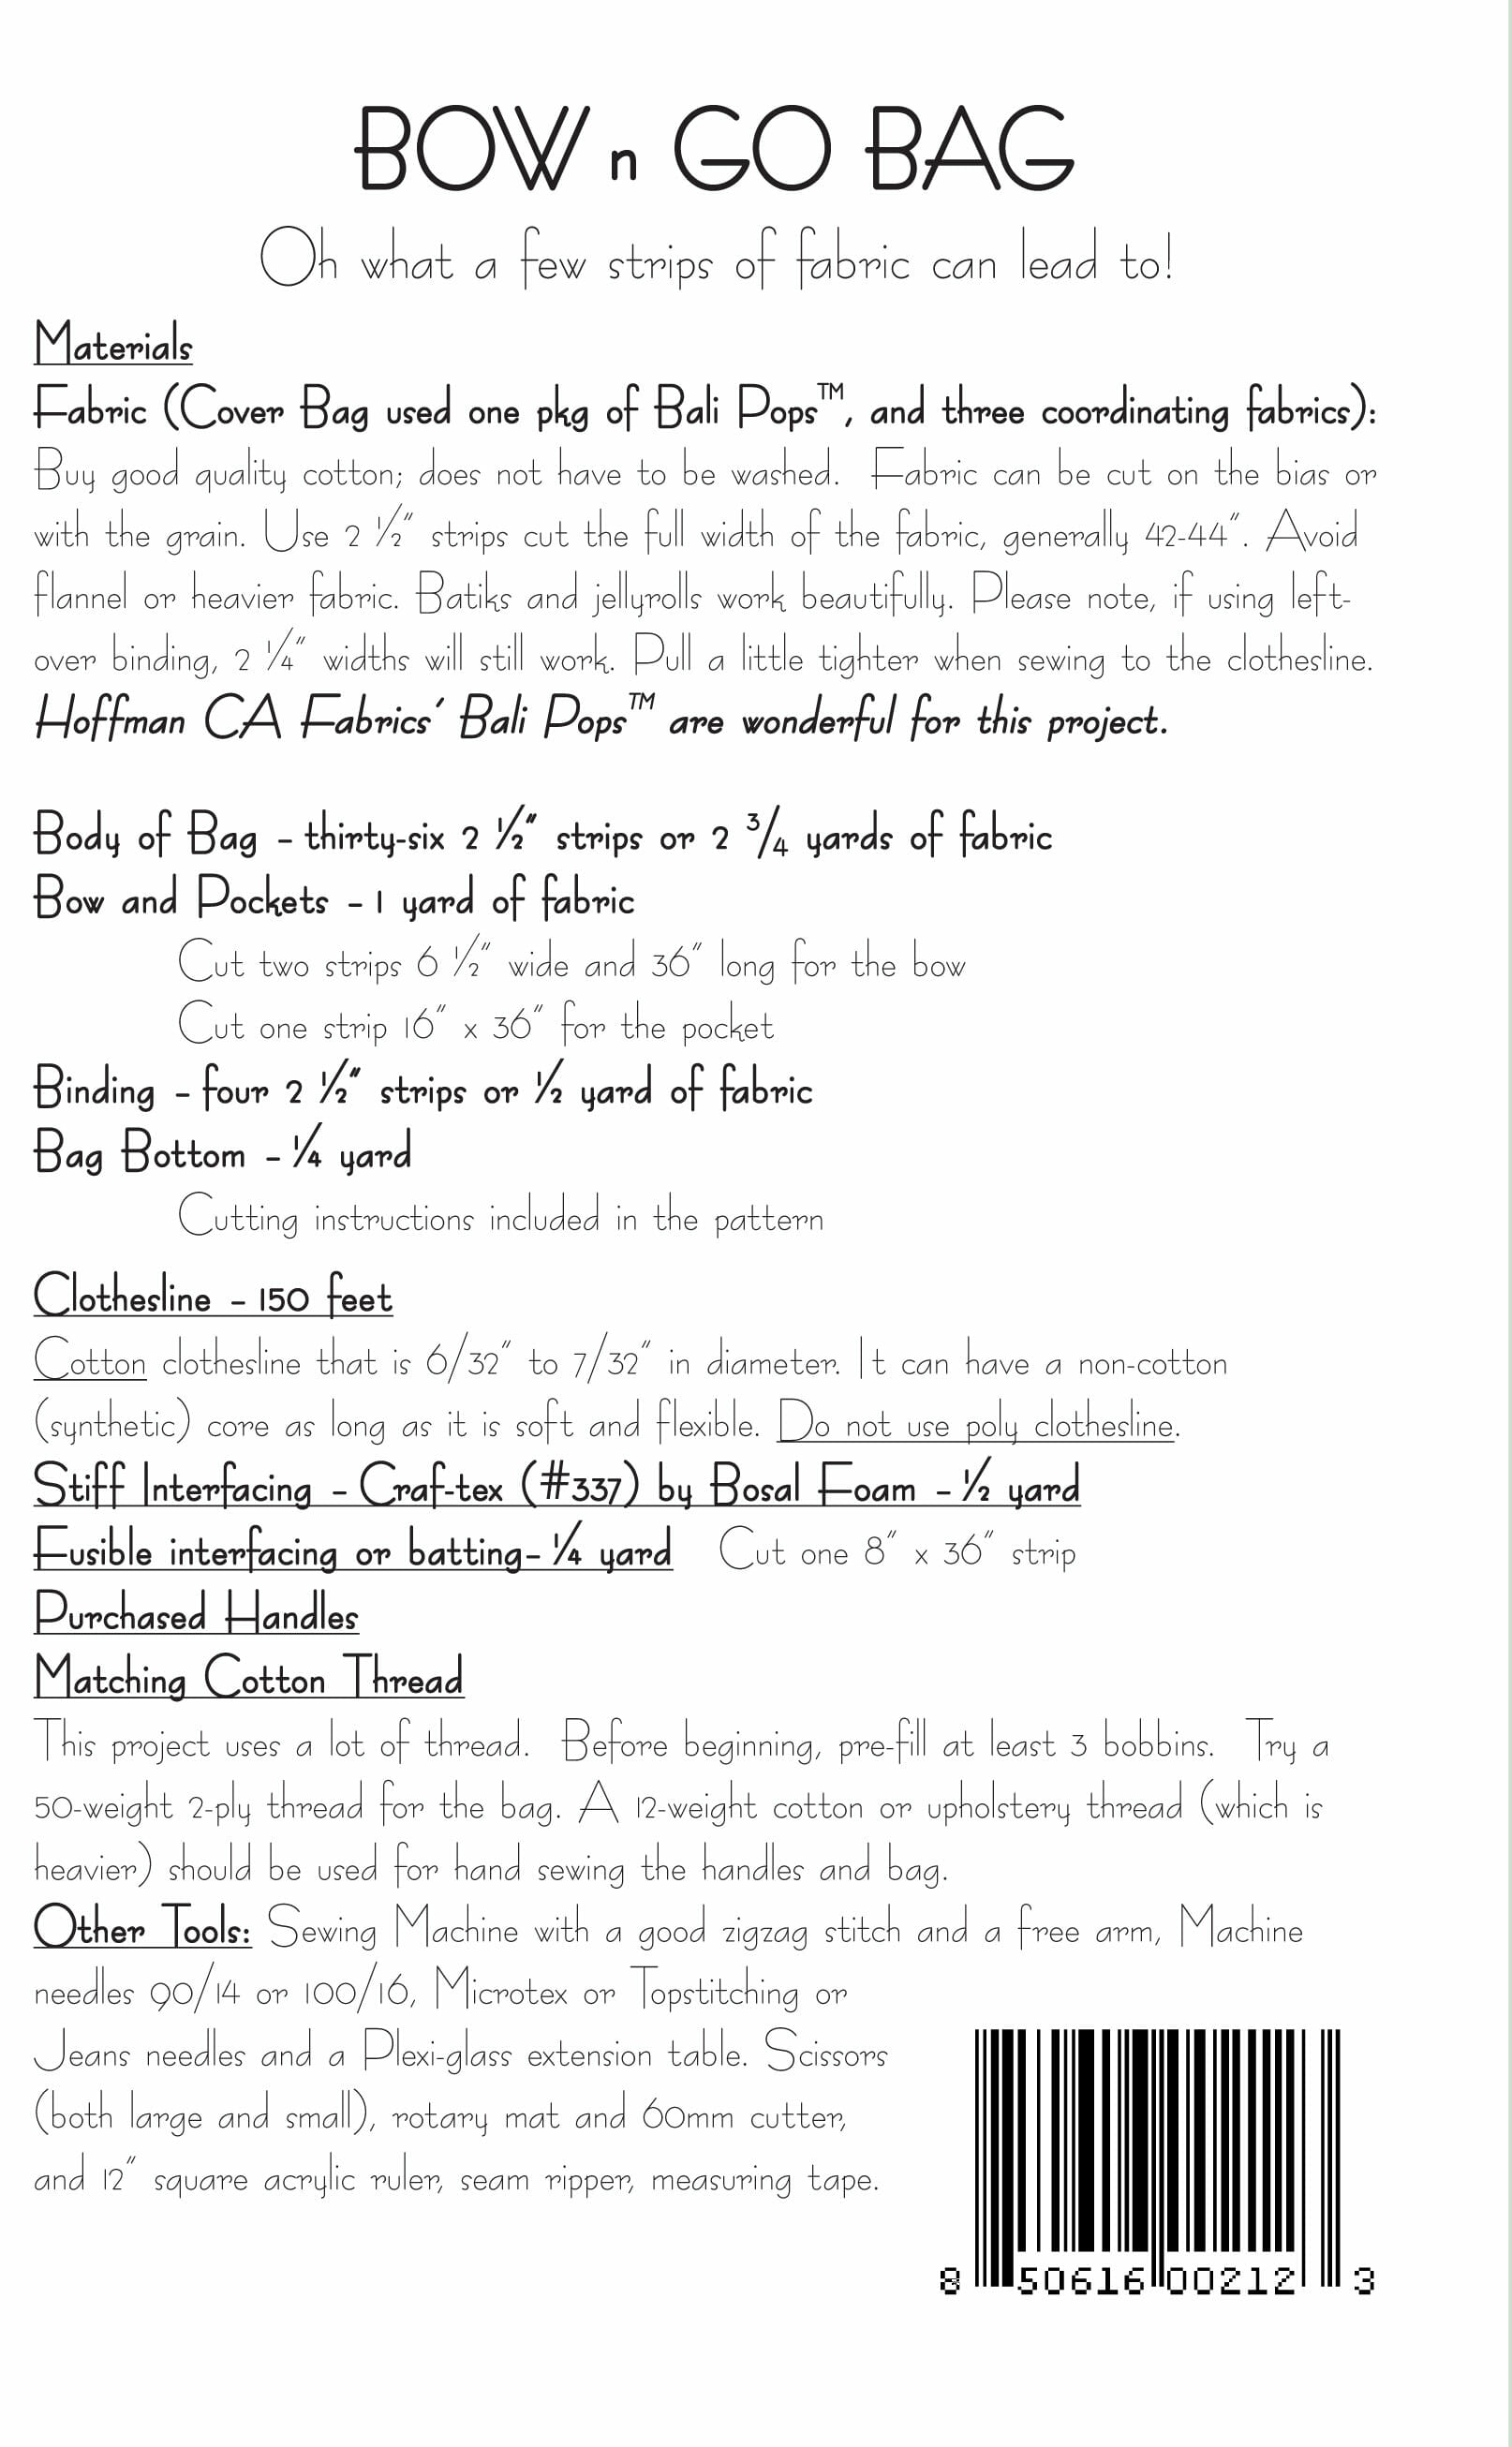 BOW n GO BAG
Oh what a few strips of fabric can lead to!
Materials
Fabric (Cover Bag used one pkg of Bali Pops™, and three coordinating fabrics):
Buy good quality cotton; does not have to be washed. Fabric can be cut on the bias or
with the grain. Use 2 ½" strips cut the full width of the fabric, generally 42-44". Avoid
flannel or heavier fabric. Batiks and jellyrolls work beautifully. Please note, if using left-
over binding, 2 ¼" widths will still work. Pull a little tighter when sewing to the clothesline.
Hoffman CA Fabrics' Bali Pops™ are wonderful for this project.
Body of Bag - thirty-six 2 ½" strips or 2 ¾ yards of fabric
Bow and Pockets - 1 yard of fabric
Cut two strips 6 ½" wide and 36" long for the bow
Cut one strip 16" x 36" for the pocket
Binding - four 2 ½" strips or ½ yard of fabric
Bag Bottom - ¼ yard
Cutting instructions included in the pattern
Clothesline - 150 feet
Cotton clothesline that is 6/32" to 7/32" in diameter. It can have a non-cotton
(synthetic) core as long as it is soft and flexible. Do not use poly clothesline.
Stiff Interfacing - Craf-tex (#337) by Bosal Foam - ½ yard
Fusible interfacing or batting- ¼ yard Cut one 8" x 36" strip
Purchased Handles
Matching Cotton Thread
This project uses a lot of thread. Before beginning, pre-fill at least 3 bobbins. Try a
50-weight 2-ply thread for the bag. A 12-weight cotton or upholstery thread (which is
heavier) should be used for hand sewing the handles and bag.
Other Tools: Sewing Machine with a good zigzag stitch and a free arm, Machine
needles 90/14 or 100/16, Microtex or Topstitching or
Jeans needles and a Plexi-glass extension table. Scissors
(both large and small), rotary mat and 60mm cutter,
and 12" square acrylic ruler, seam ripper, measuring tape.
8 50616 00212 3